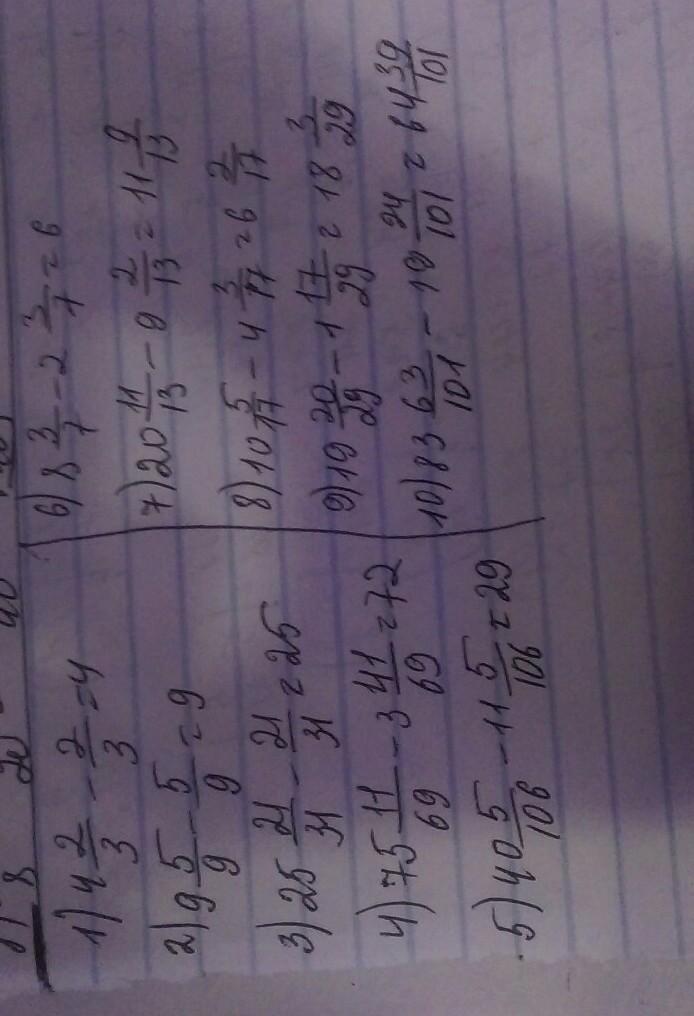 1) 4 2/3 - 2/3 = 4
2) 9 5/9 - 5/9 = 9
3) 25 21/31 - 21/31 = 25
4) 75 11/69 - 3 41/69 = 72
5) 40 5/106 - 11 5/106 = 29
6) 8 3/7 - 2 3/7 = 6
7) 20 11/13 - 9 2/13 = 11 9/13
8) 10 5/17 - 4 3/17 = 6 2/17
9) 19 20/29 - 1 17/29 = 18 3/29
10) 83 63/101 - 19 24/101 = 64 39/101